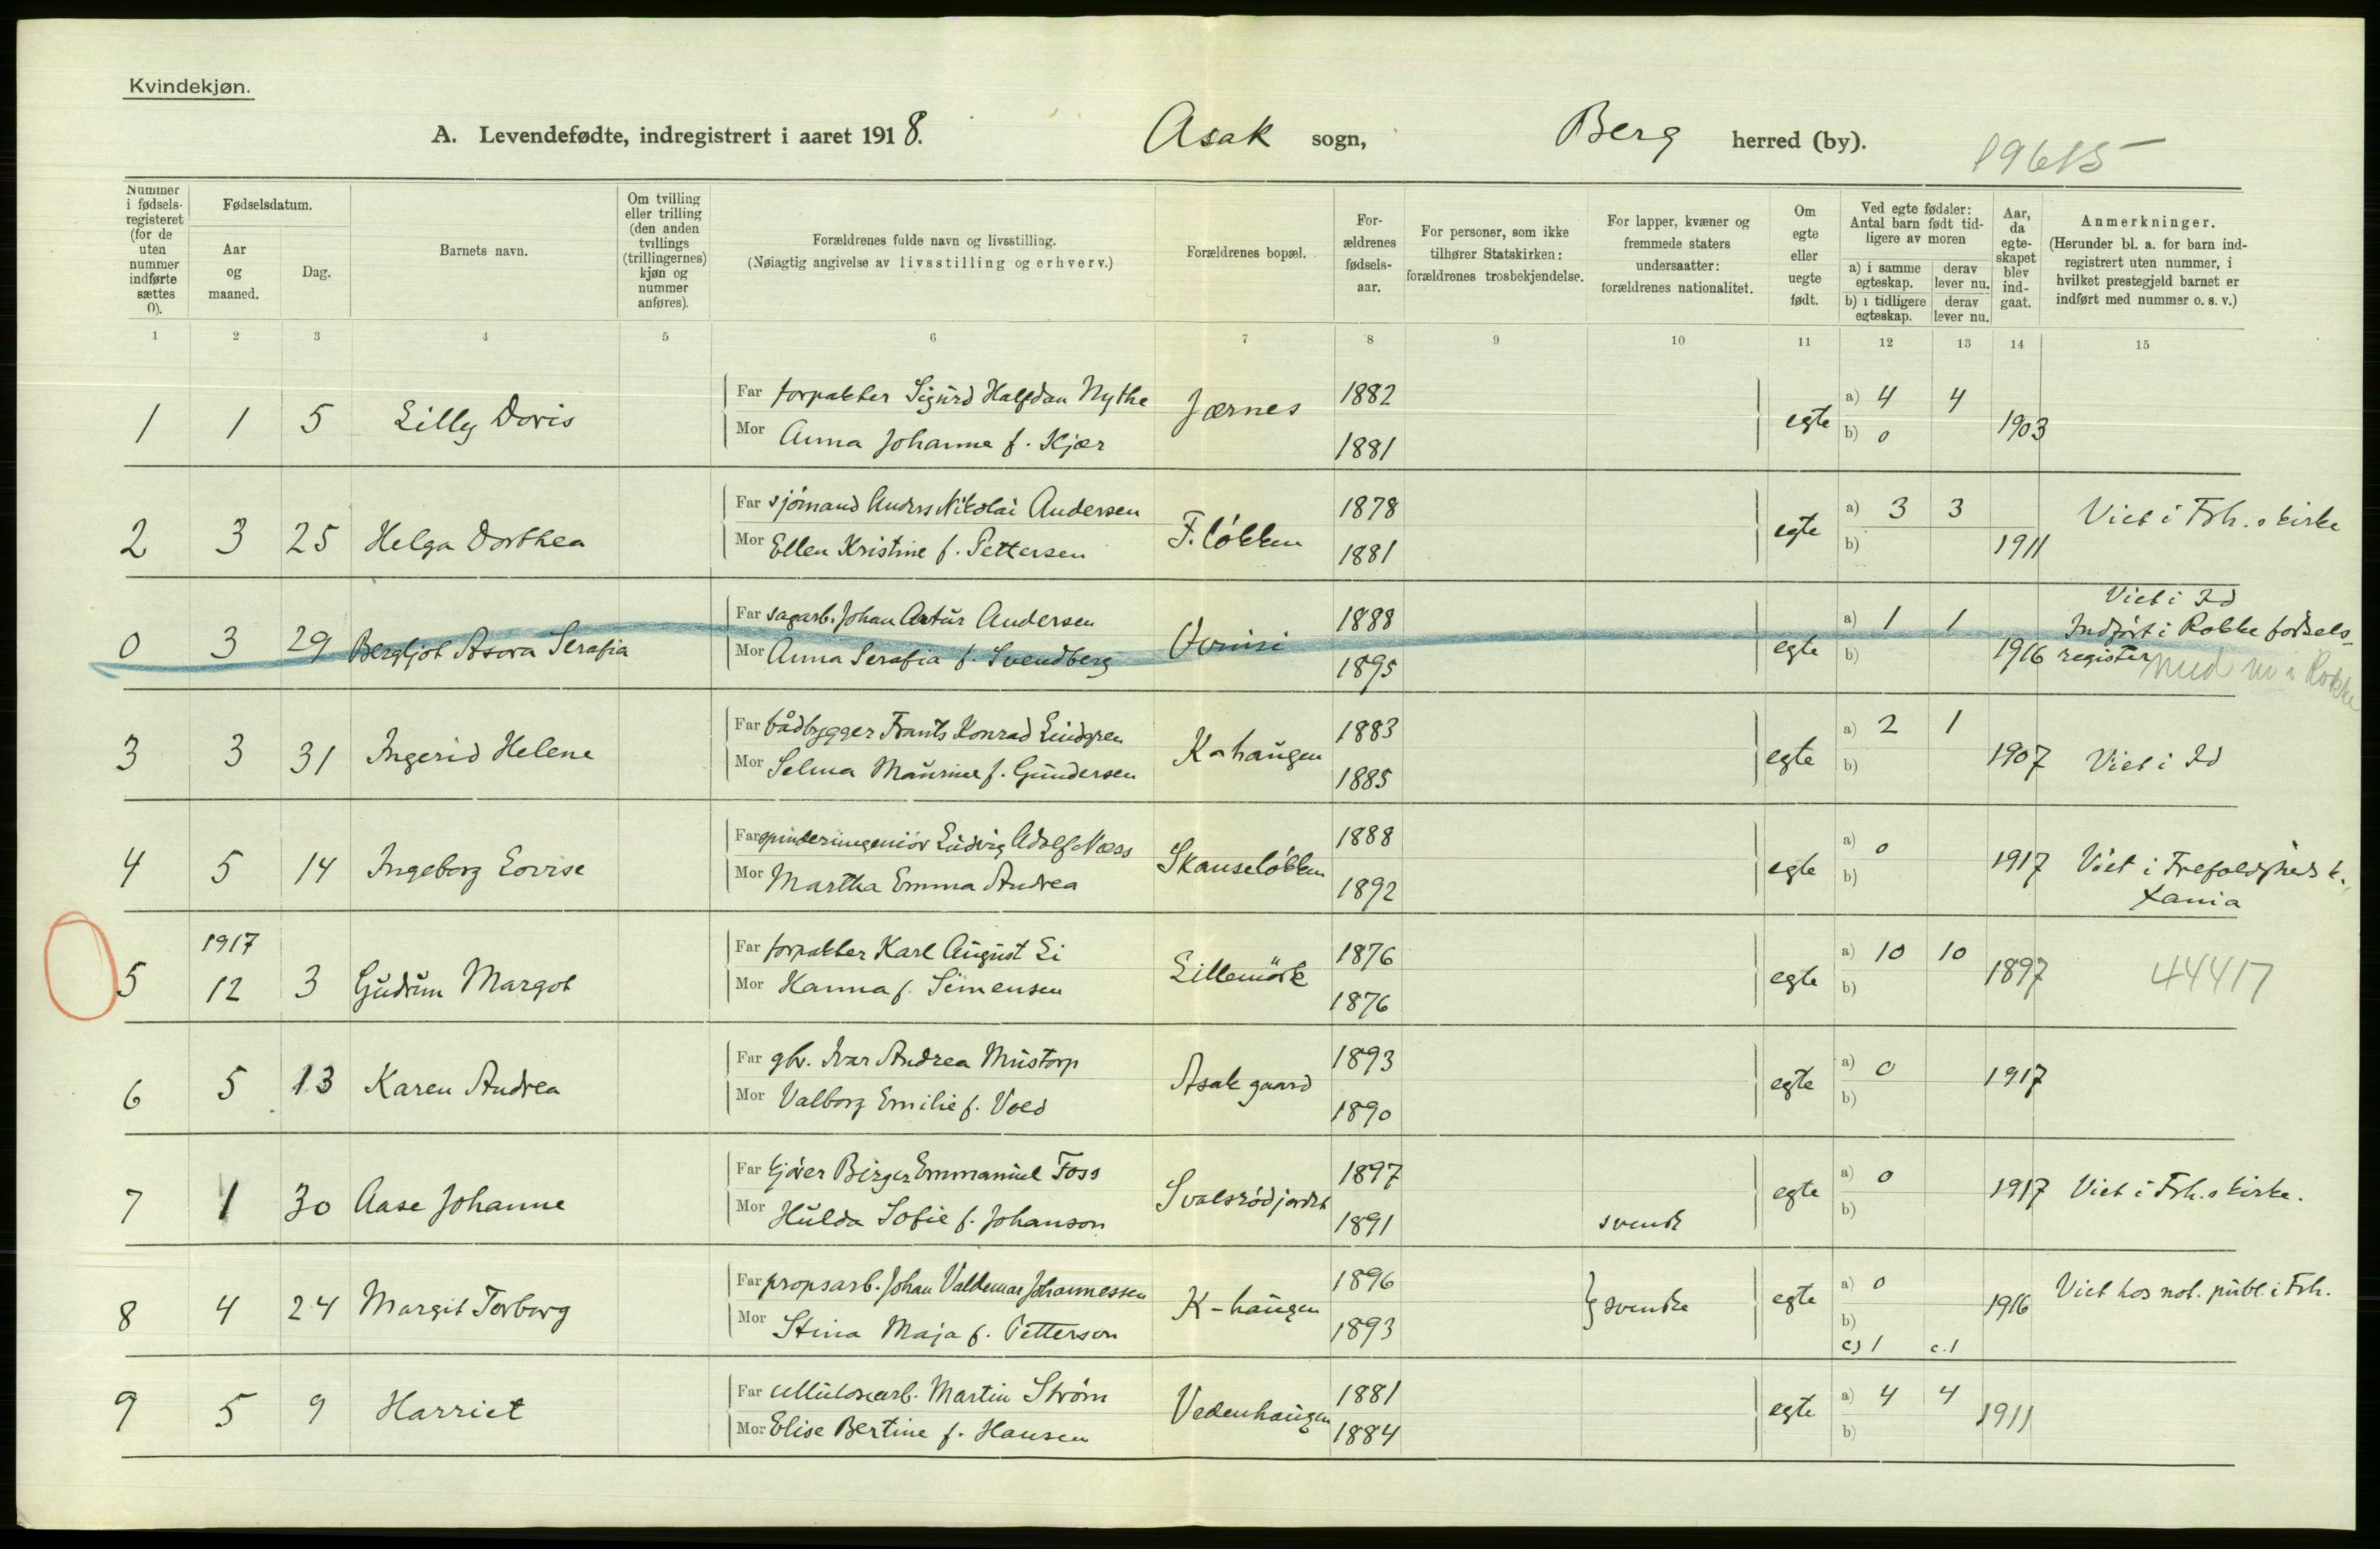 Kvindekjøn.
A. Levendefødte, indregistrert i aaret 1918. Asak sogn, Berg herred (by).
19615
Nummer i fødselsregisteret (for de uten nummer indførte sættes 0).
Fødselsdatum.
Aar og maaned.
Dag.
Barnets navn.
Om tvilling eller trilling (den anden tvillings (trillingernes) kjøn og nummer anføres).
Forældrenes fulde navn og livsstilling.
(Nøiagtig angivelse av livsstilling og erhverv.)
Forældrenes bopæl.
Forældrenes fødselsaar.
For personer, som ikke tilhører Statskirken: forældrenes trosbekjendelse.
For lapper, kvæner og fremmede staters undersaatter: forældrenes nationalitet.
Om egte eller uegte født.
Ved egte fødsler: Antal barn født tidligere av moren
a) i samme egteskap. derav lever nu.
b) i tidligere egteskap. derav lever nu.
Aar, da egteskapet blev indgaat.
Anmerkninger.
(Herunder bl. a. for barn indregistrert uten nummer, i hvilket prestegjeld barnet er indført med nummer o. s. v.)
1 2 3 4 5 6 7 8 9 10 11 12 13 14 15
1 1 5 Lilly Doris Far forpakter Sigurd Halfdan Nythe Jærnes 1882 egte a) 4 4 1903
Mor Anna Johanne f. Kjær 1881 b) 0
2 3 25 Helga Dorthea Far sjömand Anders Nikolai Andersen F. lökken 1878 egte a) 3 3 1911 Viet i Frh.s kirke
Mor Ellen Kristine f. Pettersen 1881 b)
0 3 29 Bergljot Asora Serafia Far sagarb. Johan Artur Andersen 1888 egte a) 1 1 1916 Viet i Id
Indført i Rokke fødsels-
register med nr i Rokke
Mor Anna Serafia f. Svendberg 1895 b)
3 3 31 Ingerid Helene Far båtbygger Frants Konrad Lindgren K-haugen 1883 egte a) 2 1 1907 Viet i Id
Mor Selma Maurine f. Gundersen 1885 b)
4 5 14 Ingeborg Lovise Far spinderiingeniör Ludvig Adolf Næss Skanselökken 1888 egte a) 0 1917 Viet i Trefoldigheds k.
Xania
Mor Martha Emma Andrea 1892 b)
1917
5 12 3 Gudrun Margot Far forpakter Karl August Li Lillemörk 1876 egte a) 10 10 1897 44417
Mor Hanna f. Simensen 1876 b)
6 5 13 Karen Andrea Far gbr. Ivar Andrea Mustorp Asak gaard 1893 egte a) 0 1917
Mor Valborg Emilie f. Vold 1890 b)
7 1 30 Aase Johanne Far kjörer Birger Emmanuel Foss Svalsrödjordet 1897 egte a) 0 1917 Viet i Frh.s kirke.
Mor Hulda Sofie f. Johanson 1891 svensk b)
8 4 24 Margit Torborg Far propsarb. Johan Valdemar Johannessen K-haugen 1896 svenske egte a) 0 1916 Viet hos not. publ. i Frh.
Mor Stina Maja f. Petterson 1893 b)
c) 1 c. 1
9 5 9 Harriet Far cellulosearb. Martin Ström Vedenhaugen 1881 egte a) 4 4 1911
Mor Elise Bertine f. Hansen 1884 b)